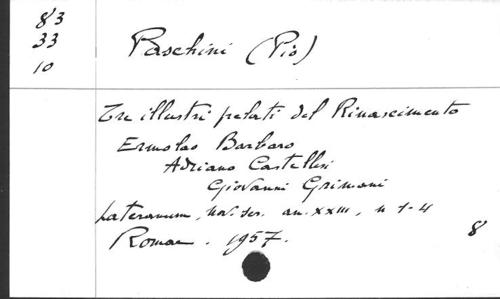 83
33
10
Paschini (Pio)
Tre illustri prelati del Rinascimento
Ermolao Barbaro
Adriano Castellesi
Giovanni Grimani
Lateranum, nov. ser. an. XXIII, n 1-4
Romae. 1957.
8